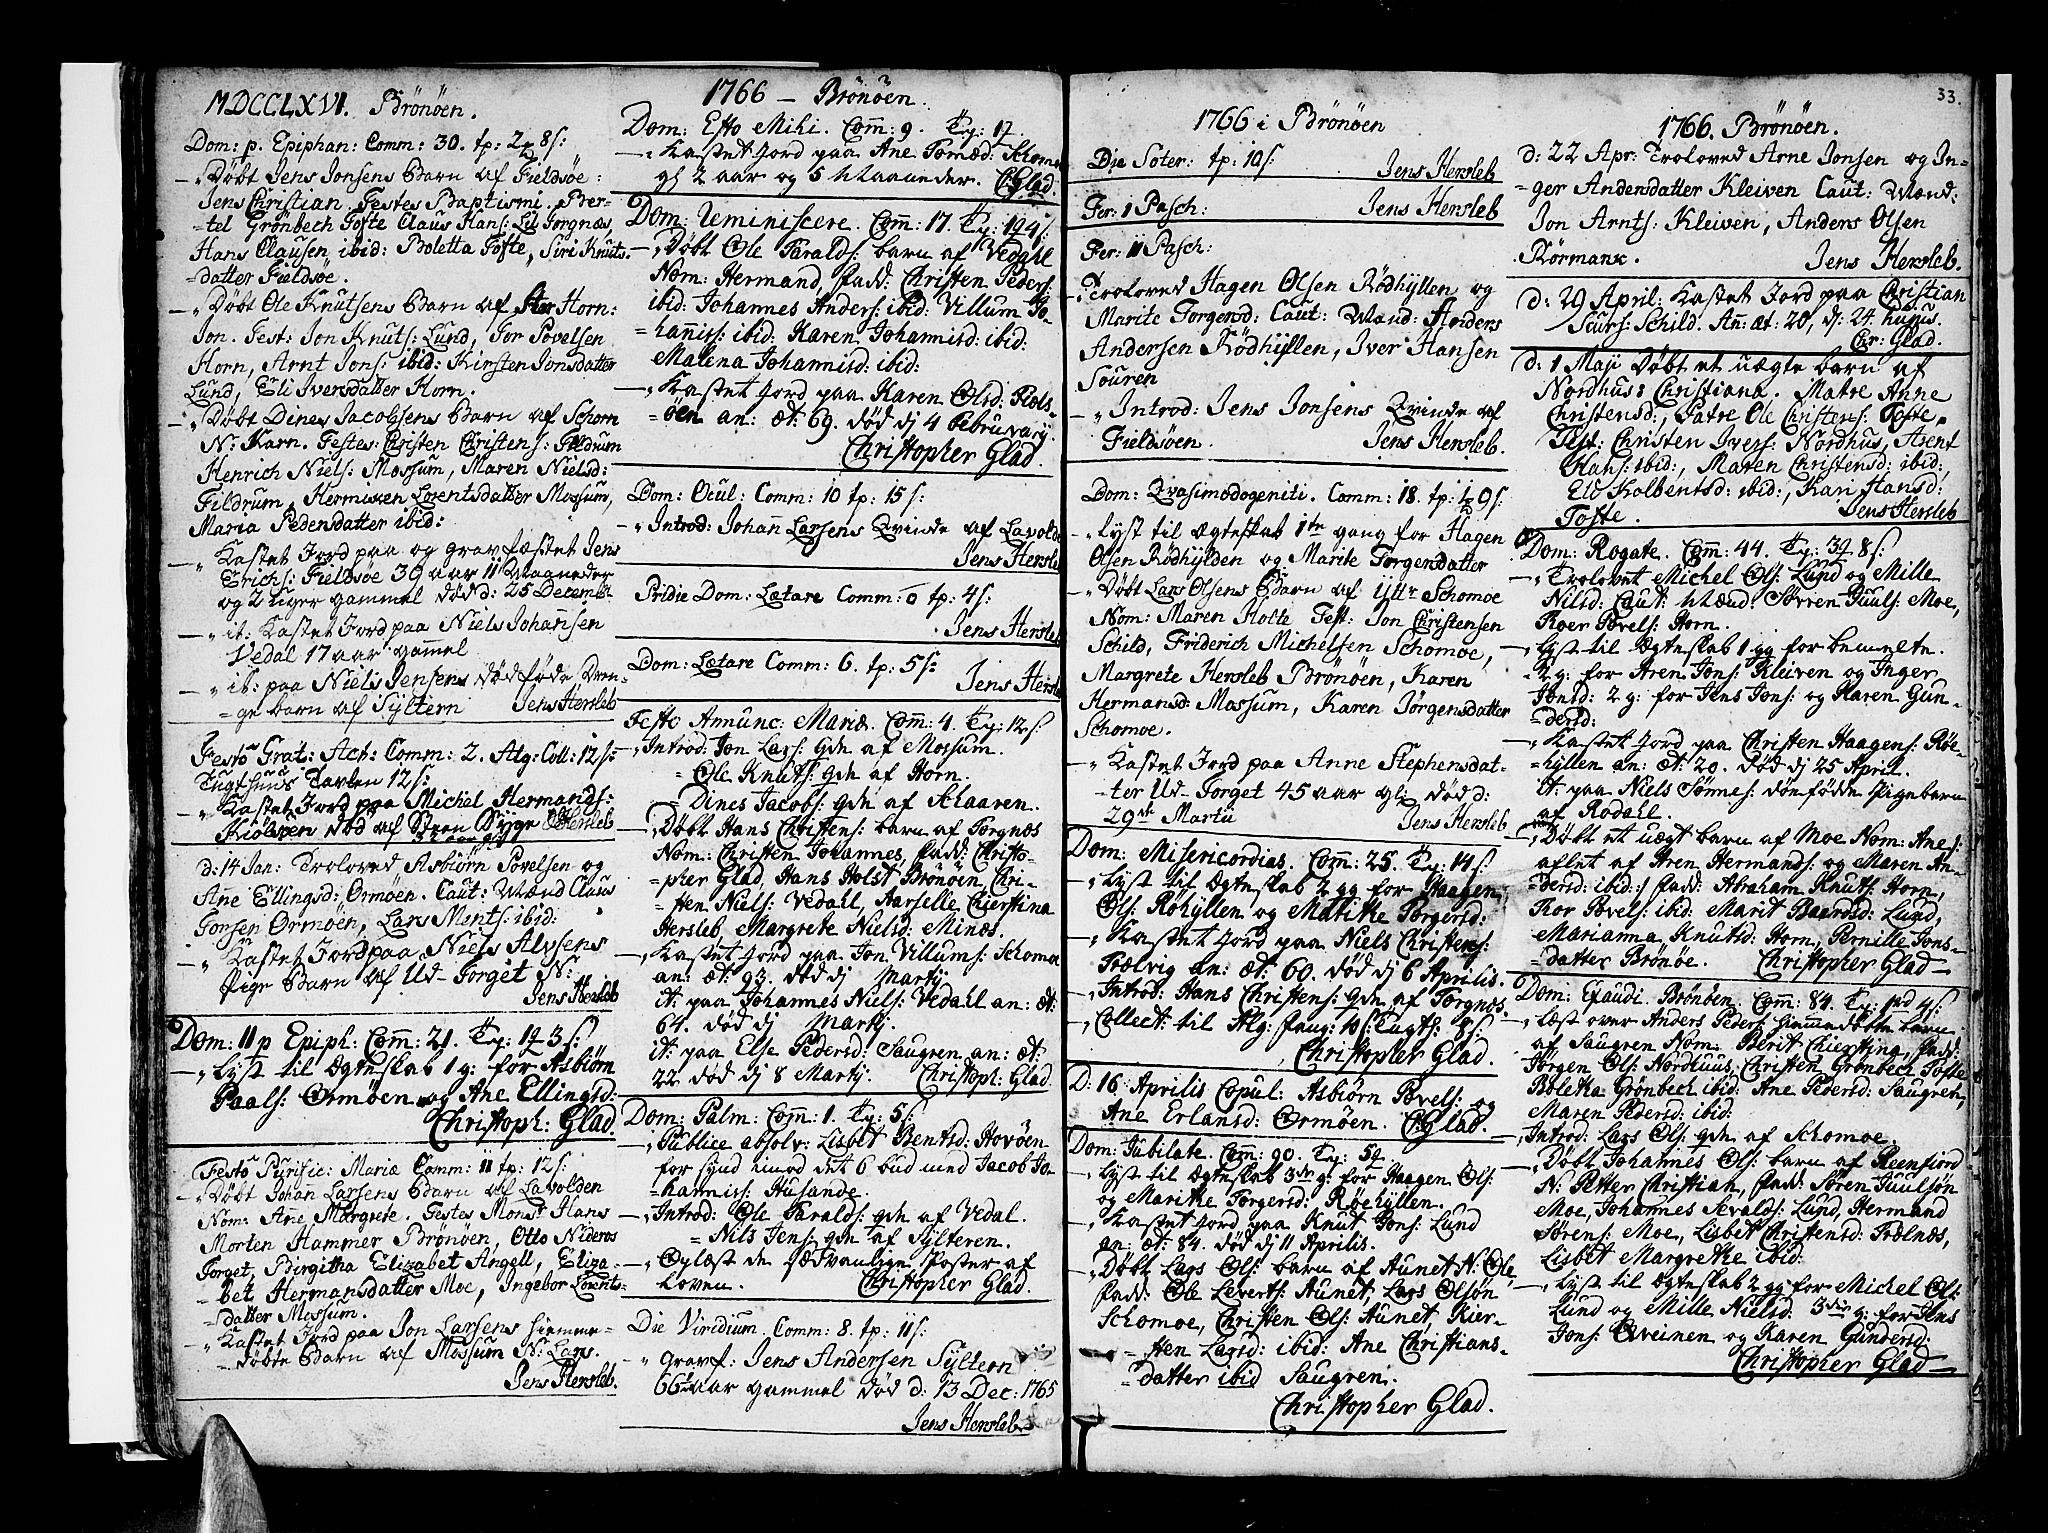 MDCCLXVI. Brönöen.
Dom: p. Epiphan: Comm: 30. tp: 8 s:
„ Döbt Jens Jonsens Barn af Fieldsöe:
Jens Christian. Testes Baptismi. Ber-
tel Grönbech Tofte Claus Hans: Lil Torgnæs,
Hans Clausen ibid: Boletta Tofte, Siri Knuts-
datter Fieldsöe.
„ Döbt Ole Knutsens Barn af Horn:
Jon. Test: Jon Knuts: Lund, Tor Povelsen
Horn, Arnt Jons: ibid: Kirsten Jonsdatter
Lund, Eli Iversdatter Horn.
„ Döbt Dines Jacobsens Barn af Schorn
N: Karn. Testes: Christen Christens: Feldrum
Henrich Niels: Mossum, Maren Nielsd:
Fildrum, Hermiken Lorentsdatter Mossum,
Maria Pedersdatter ibid:
„ Kastet Jord paa og gravfæstet Jens
Erichs: Fieldsöe 39 aar 11 Maaneder
og 2 uger gammel död d: 25 Decemb:
„ it: Kastet Jord paa Niels Johansen
Vedal 17 aar gamel
„ it: paa Niels Jensens dödföde Dren-
ge barn af Syltern Jens Hersleb
Festo Trat: Act: Comm: 2. Alg: Coll: 12 s:
Tugthuus Tavlen 12 s:
„ Kastet Jord paa Michel Hermands:
Kiölsven död af Steen Byge Hersleb
d: 14 Jan: Troloved Asbiörn Povelsen og
Ane Ellingsd: Ormöen. Caut: Mænd Claus
Jonsen Ormöen, Lars Monts: ibid:
„ Kastet Jord paa Niels Alvsens
Pige Barn af Ud-Torget N:
Jens Hersleb
Dom: 11 p Epiph: Com: 21. Tp: 1 3 s:
„ Lyst til Ægteskab 1 g: for Asbiörn
Paals: Ormöen og Ane Ellingsd:
Christoph: Glad.
Festo Purific: Mariæ Comm: 11 tp: 12 s:
„ Döbt Johan Larsens Barn af Lavolden
Nom: Ane Margrete. Testes Monsr Hans
Morten Hammer Brönöen, Otto Nideros
Torget, Birgitha Elizabet Angell, Eliza-
bet Hermansdatter Moe, Ingebor Lorents-
datter Mossum.
„ Kastet Jord paa Jon Larsens hiemme-
döbte Barn af Mossum N: Lars.
Jens Hersleb.
1766 – Brönöen.
Dom: Esto Mihi. Com: 9. Tp: 1
„ Kastet Jord paa Ane Tomæd: Schomo
gl 2 aar og 5 Maaneder. C: Glad.
Dom: Reminiscere. Com: 17 Tp: 1 4 s:
„ Döbt Ole Taralds: barn af Vedahl
Nom: Hermand, fadd: Christen Peders:
ibid: Johannes Anders: ibid: Villum Jo-
hanis: ibid: Karen Johannisd: ibid:
Malena Johannisd: ibid:
„ Kastet Jord paa Karen Olsd:
öen an: æt: 69. död dj 4 februarij.
Christopher Glad.
Dom: Ocul: Comm: 10 tp: 15 s:
„ Introd: Johan Larsens Qvinde af Lavolde
Jens Hersleb
Pridie Dom: Lætare Comm: 0 tp: 4 s:
Jens Hersleb
Dom: Lætare Comm: 6. tp: 5 s:
Jens Hersleb
Festo Annunc: Mariæ. Com: 4. Tp: 12 s
„ Introd: Jon Lars: qde af Mossum.
Ole Knuts: qde af Horn.
Dines Jacobs: qde af Schaaren.
„ Döbt Hans Christens: barn af Torgnæs
Nom: Christen Johannes, fadd: Christo-
pher Glad, Hans Holst Brönöen, Chri-
sten Niels: Vedahl, Aarselle Chierstina
Hersleb, Margrete Nielsd: Minæs.
„ Kastet Jord paa Jon Villums: Schomo
an: æt: 93. död dj Martij
it: paa Johannes Niels: Vedahl an: æt:
64. död dj Martij.
it: paa Else Pedersd: Saugren an: æt:
22 död dj 8 Martij. Christoph: Glad
Dom: Palm: Com: 1. Tp: 5 s
„ Publice absolv: Lisbet Bentsd: Hovöen
for synd imod det 6 bud med Jacob Jo-
hannis: Husande.
„ Introd: Ole Taralds: qde af Vedal.
Nils Jens: qde af Sylteren.
„ Oplæst de sædvanlige Poster af
Loven. Christopher Glad.
Die Viridium Comm: 8. tp: 11 s:
„ Gravf: Jens Andersen Syltern
66 aar gammel död d: 13 Dec: 1765
Jens Hersleb
1766 i Brönöen
Die Soter: tp: 10 s: Jens Hersleb
Fer: 1 Pasch: Jens Hersleb
Fer: 11 Pasch:
„ Troloved Hagen Olsen Rödhyllen og
Marite Torgersd: Caut: Mænd: Anders
Andersen Rödhyllen, Iver Hansen
Souren
„ Introd: Jens Jonsens Qvinde af
Fieldsöen. Jens Hersleb.
Dom: Qvasimodogeniti. Comm: 18. tp: 9 s:
„ Lyst til Ægteskab 1te gang for Hagen
Olsen Rödhylden og Marite Torgersdatter
„ Döbt Lars Olsens Barn af Schomoe
Nom: Maren Holte Test: Jon Christensen
Schild, Friderich Michelsen Schomoe,
Margrete Hersleb Brönöen, Karen
Hermansd: Mossum, Karen Jörgensdatter
Schomoe.
„ Kastet Jord paa Anne Stephensdat-
ter Ud-Torget 45 aar gl: död d:
29de Martii Jens Hersleb
Dom: Misericordias. Com: 25. Tp: 14 s
„ Lyst til Ægteskab 2 gg for Haagen
Ols: Röhyllen og Maritke Torgersd:
„ Kastet Jord paa Niels Christens:
Trælvig an: æt: 60. död dj 6 Aprilis.
„ Introd: Hans Christens: qde af Torgnæs.
„ Collect: til Alg: fang: 10 s: Tugts: 8 s
Christopher Glad.
D: 16 Aprilis Copul: Asbiörn Povels: og
Ane Erlansd: Ormöen. C: Glad.
Dom: Jubilate. Com: 90. Tp: 5
„ Lyst til Ægteskab 3die g: for Haagen Ols:
og Maritke Torgersd: Röehyllen.
„ Kastet Jord paa Knut Jons: Lund
an: æt: 84. död dj 11 Aprilis.
„ Döbt Lars Ols: barn af Aunet N: Ole,
fadd: Ole Leverts: Aunet, Lars Olsön
Schomoe, Christen Ols: Aunet, Kier-
sten Larsd: ibid: Ane Christians-
datter ibid Saugren.
Christopher Glad.
33.
1766. Brönöen.
d: 22 Apr: Troloved Arne Jonsen og In-
ger Andersdatter Kleiven Caut: Mænd:
Jon Arnts: Kleiven, Anders Olsen
Rörmark. Jens Hersleb.
d: 29 April: Kastet Jord paa Christian
Siurs: Schild. An: æt: 20, dj: 24. hujus.
Chr: Glad.
d: 1 Maji Döbt et uægte barn af
Nordhus: Christiana. Matre Anne
Christensd:, Patre Ole Christens: Tofte.
Test: Christen Ivers: Nordhus, Arent
Hans: ibid:, Maren Christensd: ibid:,
Kolbentsd: ibid:, Kari Hansd:
Tofte. Jens Hersleb
Dom: Rogate. Com: 44. Tp: 3 8 s:
„ Trolovet Michel Ols: Lund og Mille
Nilsd: Caut: Mænd: Sörren Juuls: Moe,
Roer Povels: Horn.
„ Lyst til Ægteskab 1 gg for bemelte.
2 g: for Aren Jons: Kleiven og Inger
Jonsd: 2 g: for Jens Jons: og Karen Gun-
dersd:
„ Kastet Jord paa Christen Haagens: Röe-
hyllen an: æt: 20. död dj 25 April.
it: paa Niels Sönnes: dönfödde Pigebarn
af Rodahl.
„ Döbt et uægt barn af Moe Nom: Anes:
aflet af Aren Hermands: og Maren An-
dersd: ibid:/ fadd: Abraham Knuts: Horn,
Roer Povels: ibid: Marit Baerdsd: Lund,
Marianna Knutsd: Horn, Pernille Jons-
datter Brönöe. Christopher Glad
Dom: Exaudi. Brönöen. Com: 84. Tp: 1 4 s:
„ Læst over Anders Peders: hiemmedöbte barn
af Saugren Nom: Berit Chierstina, fadd:
Jörgen Ols: Nordhuus, Christen Grönbech Tofte
Boletha Grönbech ibid: Ane Pedersd: Saugren,
Maren Pedersd: ibid:
„ Introd: Lars Ols: qde af Schomoe.
„ Döbt Johannes Ols: barn af Reenfiord
N: Petter Christian, fadd: Sören Juulsön
Moe, Johannes Sevalds: Lund, Hermand
Sörens: Moe, Lisbet Christensd: Trælnæs,
Lisbet Margrethe ibid:
„ Lyst til Ægteskab 2 gg for Michel Ols:
Lund og Mille Nielsd: 3die g: for Jens
Jons: Qveinen og Karen Gundersd:
Christopher Glad